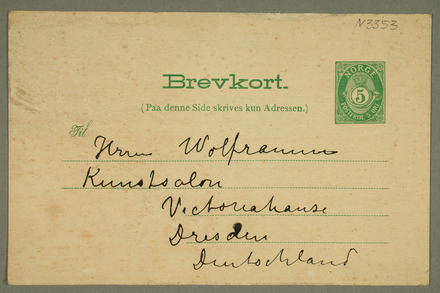 N 3353
Brevkort.
(Paa denne Side skrives kun Adressen.)
NORGE
5
POSTFRIM. 5 ØRE
Til
Herrn Wolframm
Kunstsalon
Victoriahause
Dresden
Deutschland